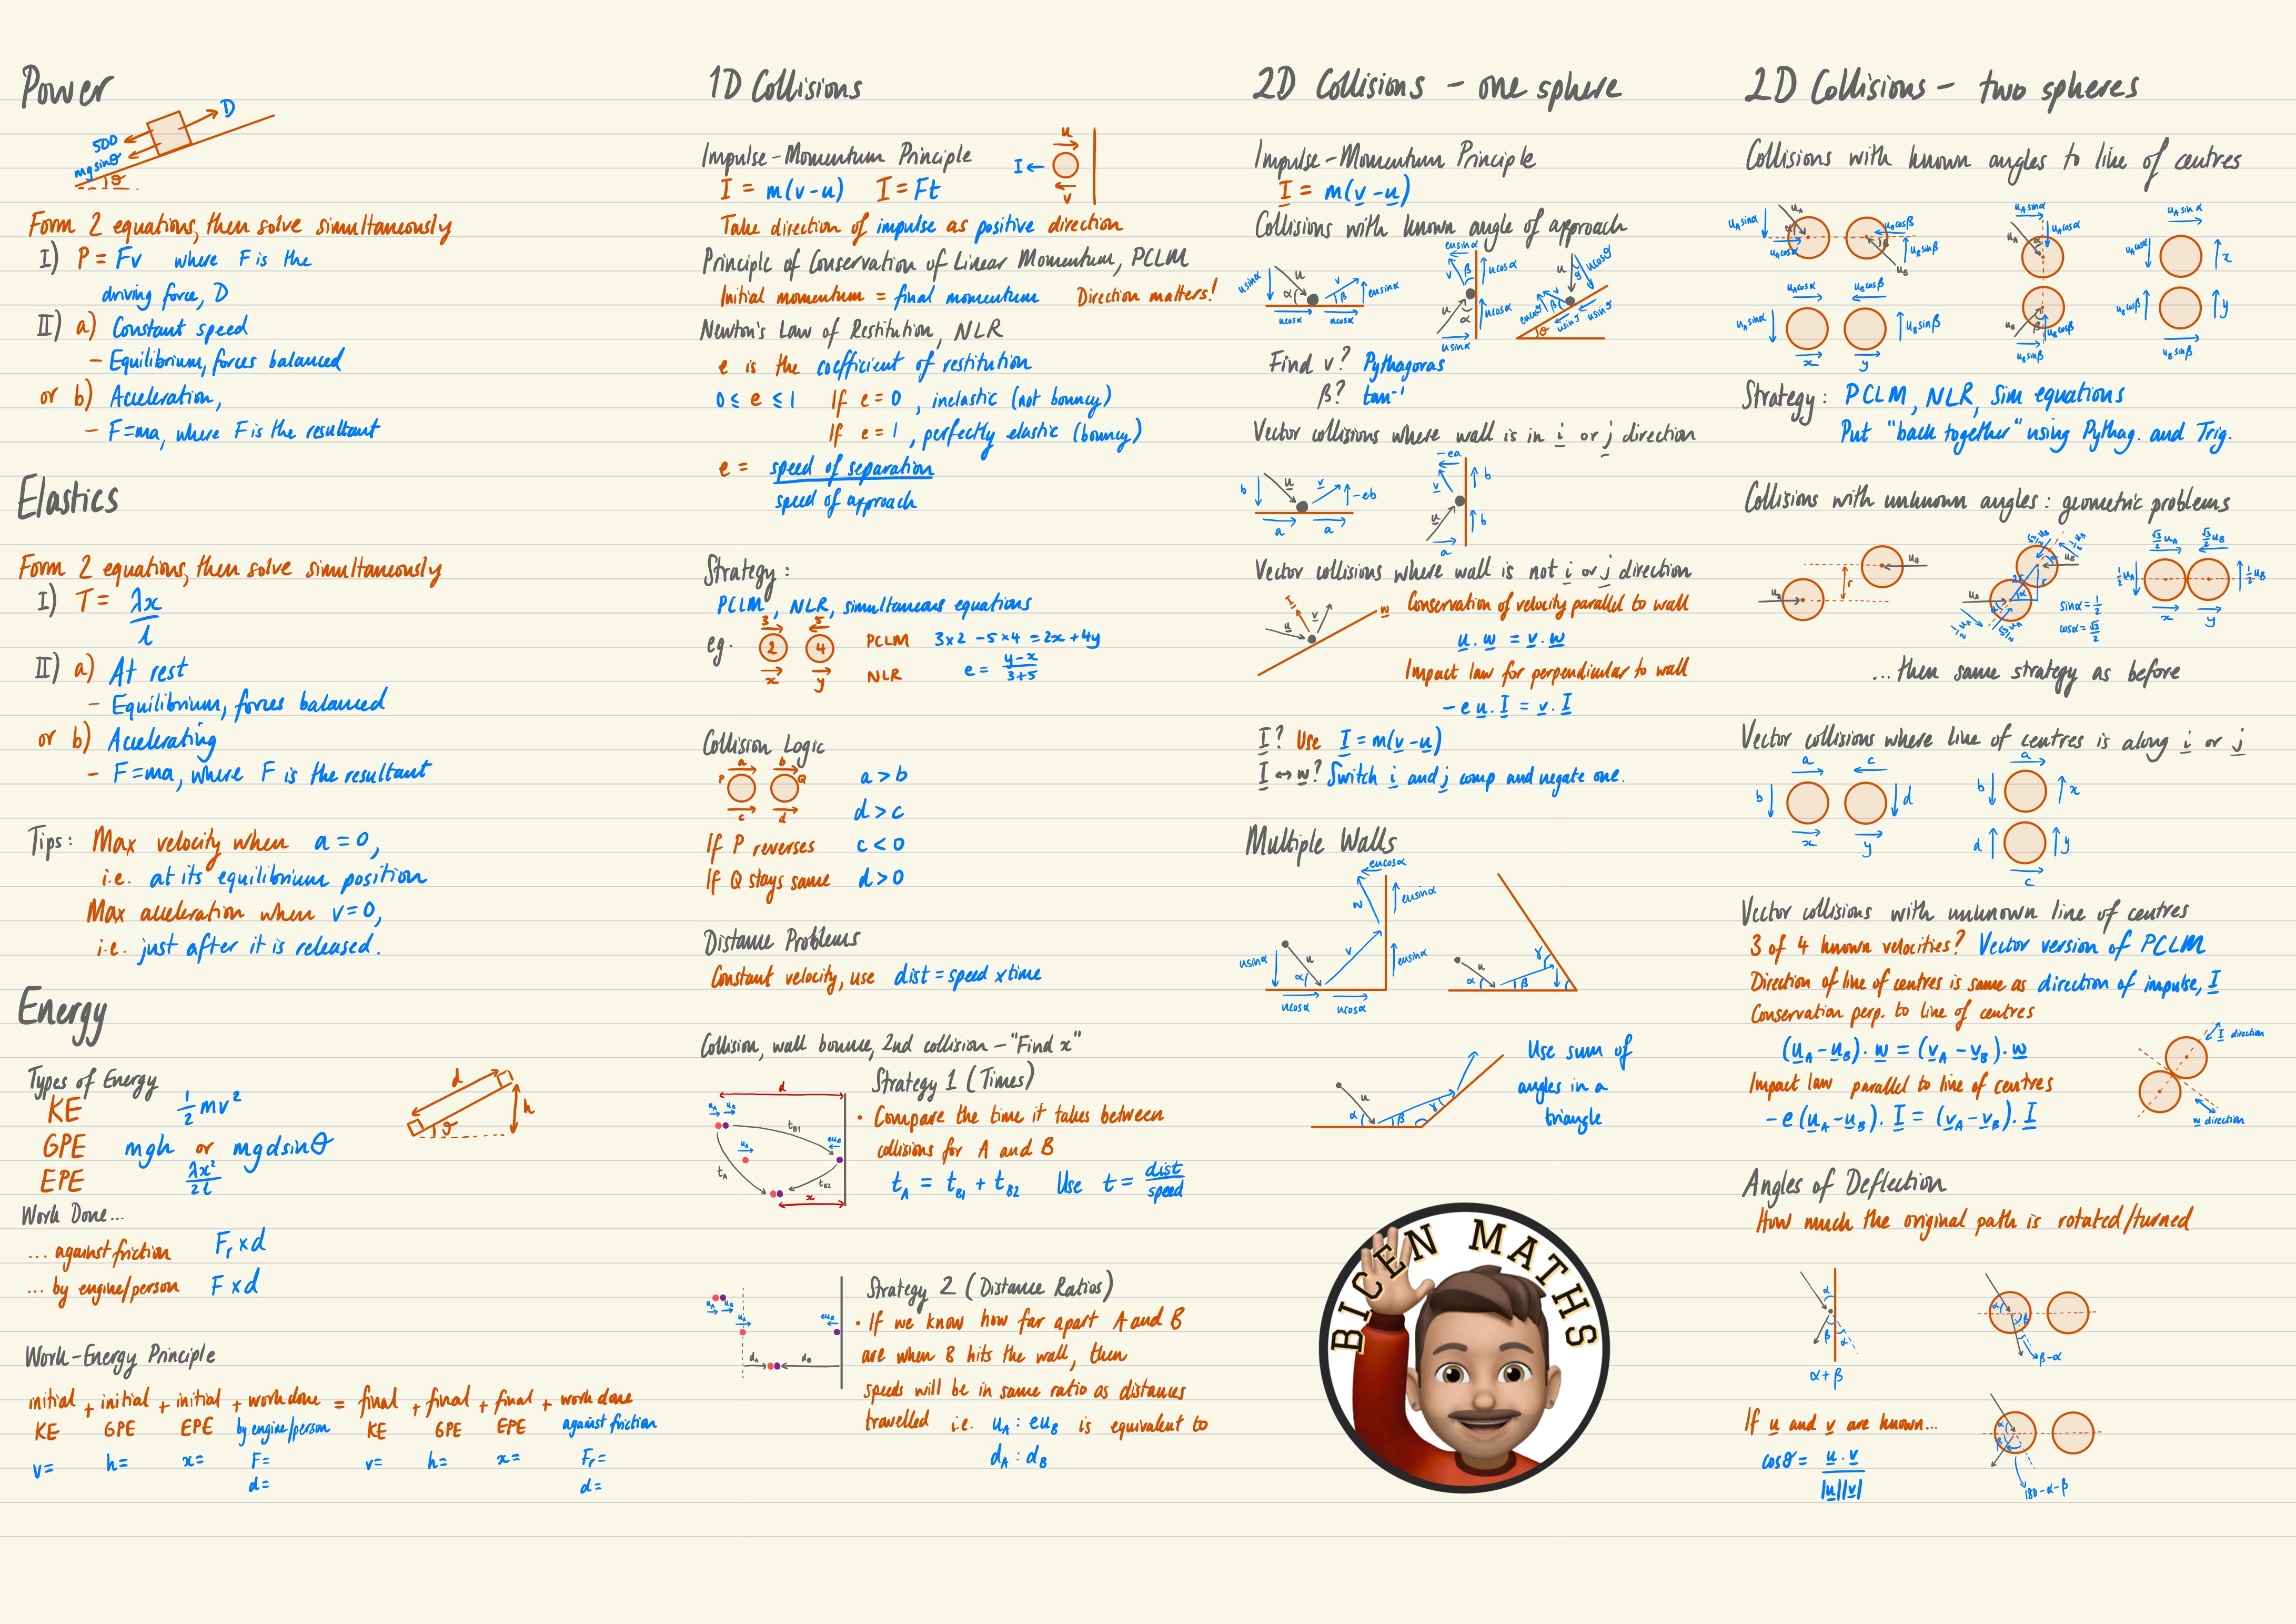 Power
D
500
mg sinθ
θ
Form 2 equations, then solve simultaneously
I) P = Fv where F is the
driving force, D
II) a) Constant speed
- Equilibrium, forces balanced
or b) Acceleration,
- F=ma, where F is the resultant
Elastics
Form 2 equations, then solve simultaneously
I) T = λx/l
II) a) At rest
- Equilibrium, forces balanced
or b) Accelerating
- F=ma, where F is the resultant
Tips: Max velocity when a = 0,
i.e. at its equilibrium position
Max acceleration when v=0,
i.e. just after it is released.
Energy
Types of Energy
KE 1/2 mv²
GPE mgh or mgdsinθ
EPE λx²/2l
d
h
θ
Work Done...
... against friction Fr × d
... by engine/person F × d
Work-Energy Principle
initial + initial + initial + work done = final + final + final + work done
KE GPE EPE by engine/person KE GPE EPE against friction
v= h= x= F= v= h= x= Fr=
d= d=
1D Collisions
Impulse-Momentum Principle
I = m(v-u) I = Ft
u
I
v
Take direction of impulse as positive direction
Principle of Conservation of Linear Momentum, PCLM
Initial momentum = final momentum Direction matters!
Newton's Law of Restitution, NLR
e is the coefficient of restitution
0 ≤ e ≤ 1 If e = 0, inelastic (not bouncy)
If e = 1, perfectly elastic (bouncy)
e = speed of separation
speed of approach
Strategy:
PCLM, NLR, simultaneous equations
3 5
eg. 2 4 PCLM 3×2 - 5×4 = 2x + 4y
x y NLR e = y-x/3+5
Collision Logic
a b
P Q a > b
c d d > c
If P reverses c < 0
If Q stays same d > 0
Distance Problems
Constant velocity, use dist = speed × time
Collision, wall bounce, 2nd collision - "Find x"
d
uA uB
tB1
uA
euB
tA
tB2
x
Strategy 1 (Times)
• Compare the time it takes between
collisions for A and B
tA = tB1 + tB2 Use t = dist/speed
uA uB
uA
euB
dA dB
Strategy 2 (Distance Ratios)
• If we know how far apart A and B
are when B hits the wall, then
speeds will be in same ratio as distances
travelled i.e. uA : euB is equivalent to
dA : dB
2D Collisions - one sphere
Impulse-Momentum Principle
I = m(v-u)
Collisions with known angle of approach
usinα u α v β eusinα
ucosα ucosα
eusinα
v β ucosα
u α ucosα
usinα
Find v? Pythagoras
β? tan⁻¹
Vector collisions where wall is in i or j direction
b u v -eb
a a
-ea
v b
u b
a
Vector collisions where wall is not i or j direction
I u v w
Conservation of velocity parallel to wall
u.w = v.w
Impact law for perpendicular to wall
-e u.I = v.I
I? Use I = m(v-u)
I ↔ w? Switch i and j comp and negate one.
Multiple Walls
eucosα
w eusinα
usinα u α v eusinα
ucosα ucosα
u α β γ
u α β γ
Use sum of
angles in a
triangle
BICEN MATHS
2D Collisions - two spheres
Collisions with known angles to line of centres
uAsinα uA α uAcosα uBcosβ β uBsinβ uB
uAcosα uBcosβ
uAsinα uBsinβ
x y
uAsinα
uA uAcosα
uBcosβ
uBsinβ
uAsinα
uAcosα x
uBcosβ y
uBsinβ
Strategy: PCLM, NLR, Sim equations
Put "back together" using Pythag. and Trig.
Collisions with unknown angles: geometric problems
uB
r
uA
2r
α
sinα = 1/2
cosα = √3/2
√3/2 uA √3/2 uB
1/2 uA 1/2 uB
x y
...then same strategy as before
Vector collisions where line of centres is along i or j
a c
b d
x y
a
b x
d y
c
Vector collisions with unknown line of centres
3 of 4 known velocities? Vector version of PCLM
Direction of line of centres is same as direction of impulse, I
Conservation perp. to line of centres
(uA - uB).w = (vA - vB).w
Impact law parallel to line of centres
-e(uA - uB).I = (vA - vB).I
I direction
w direction
Angles of Deflection
How much the original path is rotated/turned
α
β α
α+β
α β
β-α
If u and v are known...
cosθ = u.v
|u||v|
α
β
180-α-β